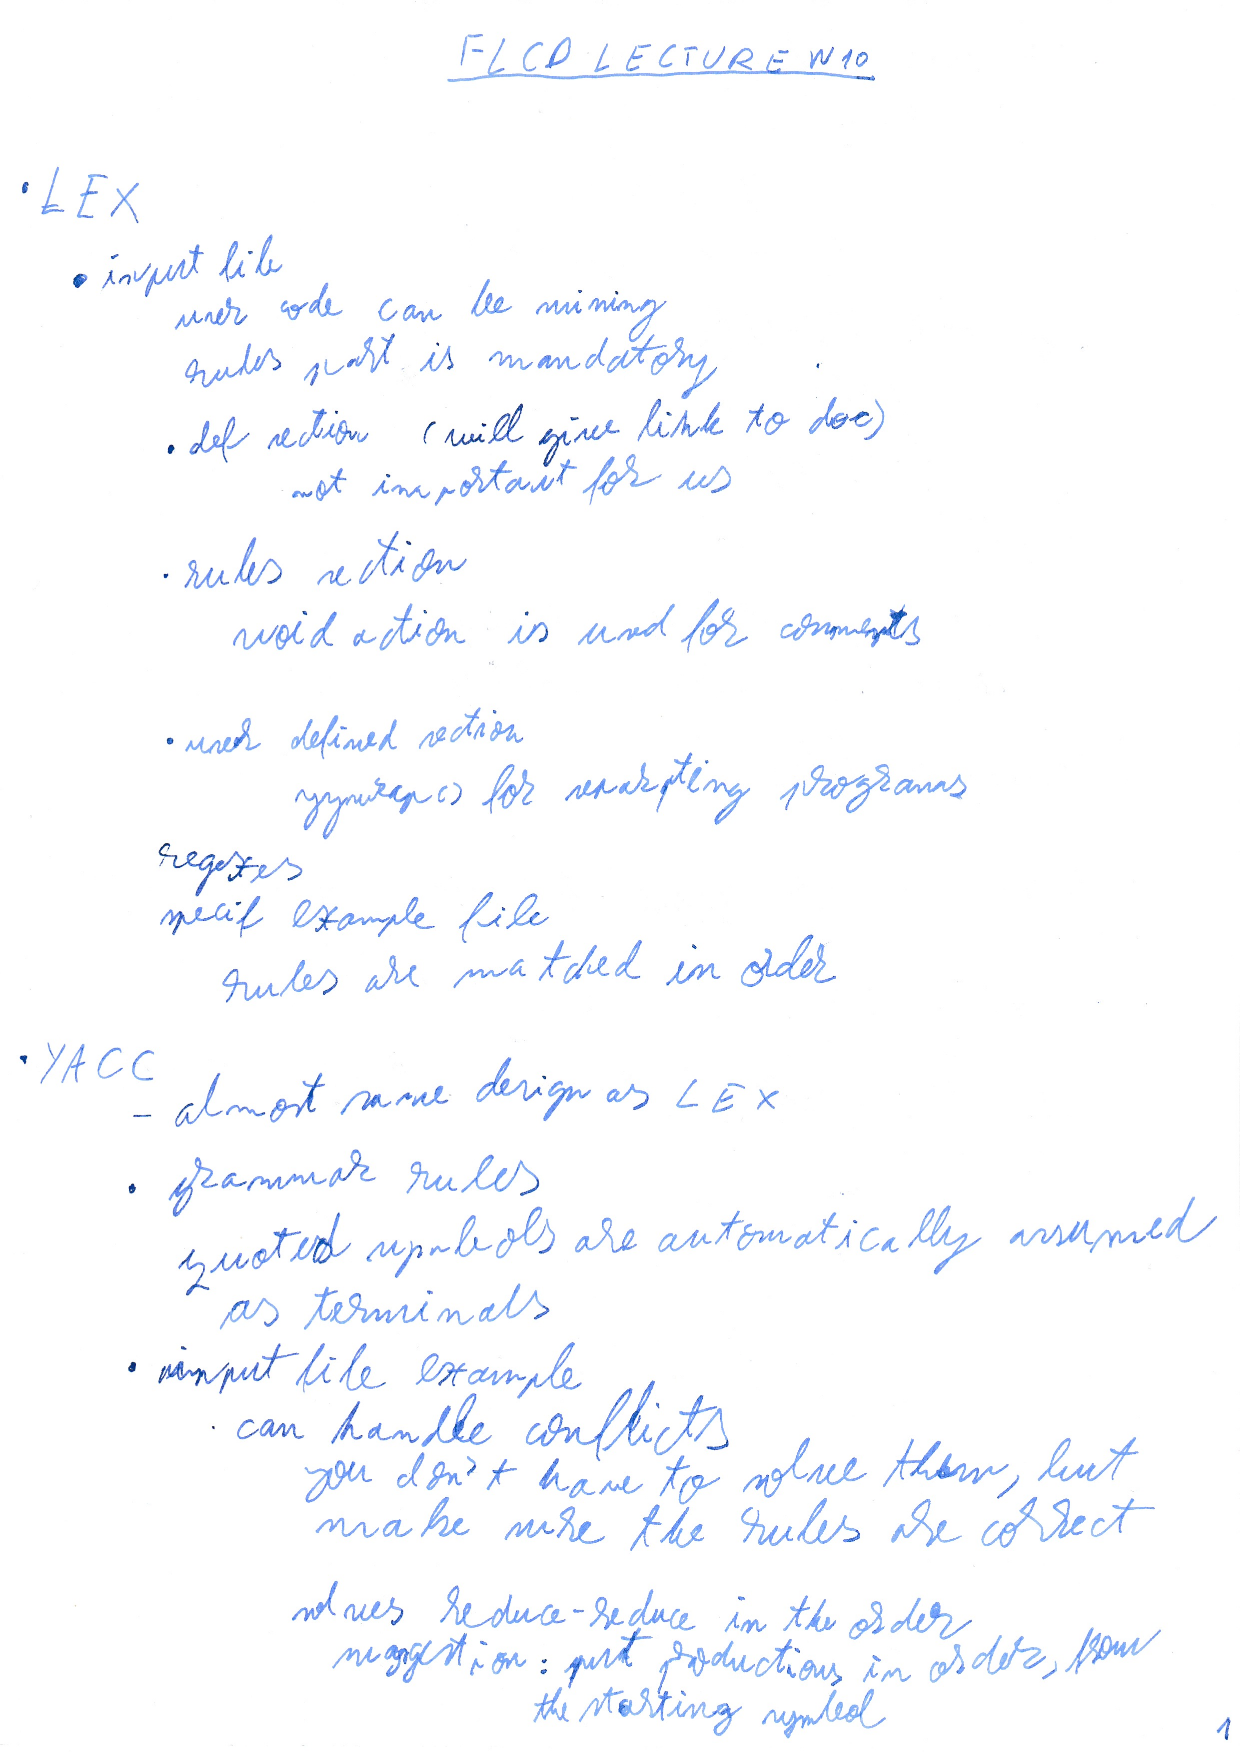 FLCD LECTURE W10
• LEX
• input file
user code can be missing
rules part is mandatory
• def section (will give link to doc)
not important for us
• rules section
void action is used for comments
• user defined section
yywrap() for programs
regexes
specif example file
rules are matched in order
• YACC
- almost same design as LEX
• grammar rules
quoted symbols are automatically assumed
as terminals
• input file example
• can handle conflicts
you don't have to solve them, but
make sure the rules are correct
solves reduce-reduce in the order
suggestion: put productions in order, from
the starting symbol
1